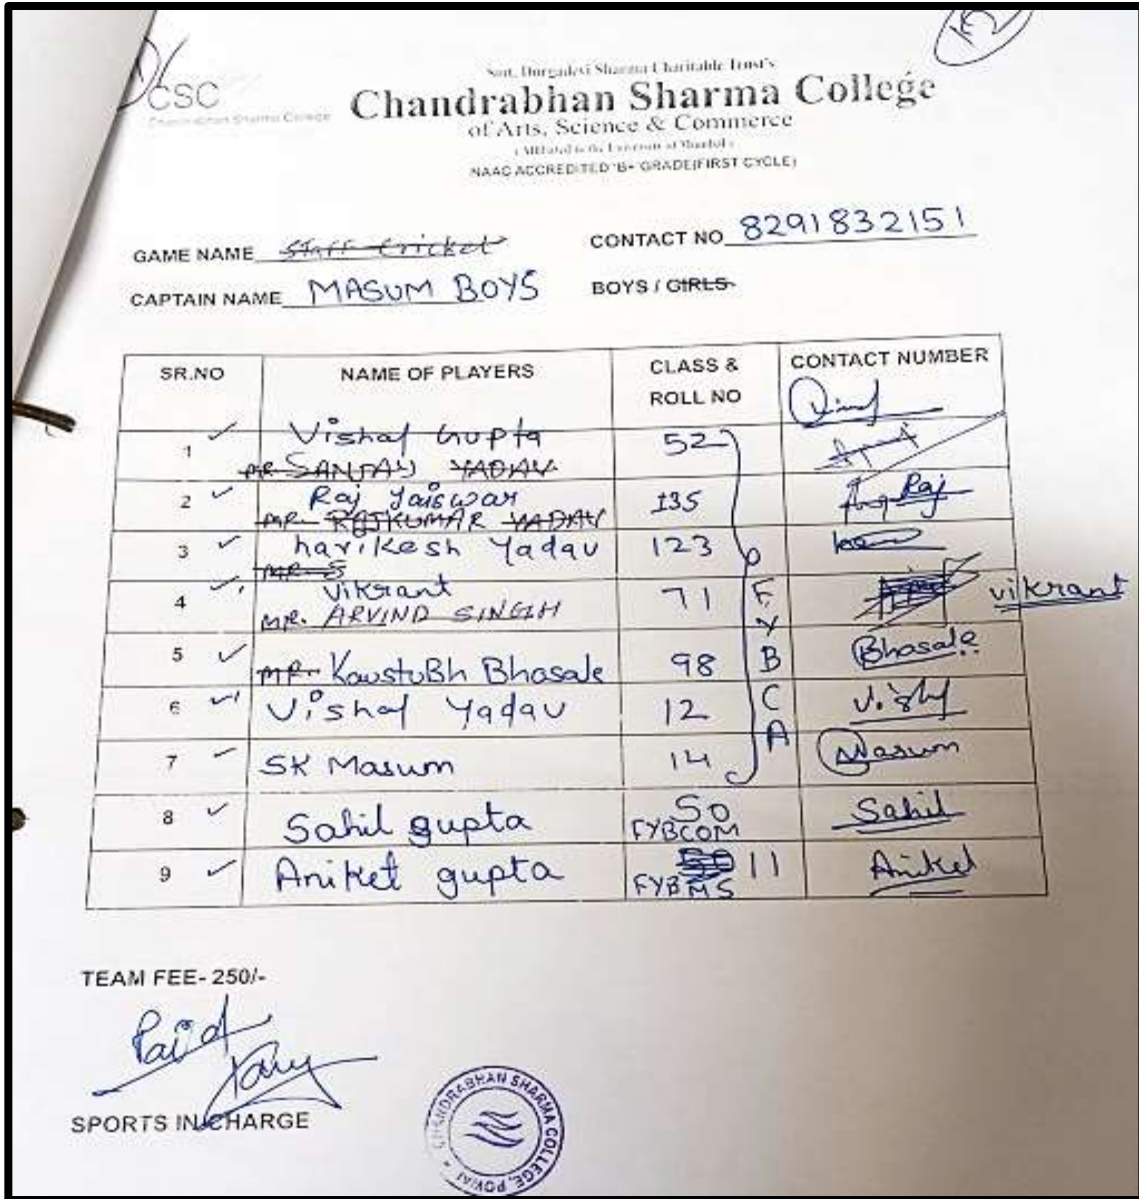 CSC
Chandrabhan Sharma College
Smt. Durgadevi Sharma Charitable Trust's
Chandrabhan Sharma College
of Arts, Science & Commerce
(Affiliated to the University of Mumbai)
NAAC ACCREDITED 'B+' GRADE(FIRST CYCLE)
GAME NAME Staff Cricket CONTACT NO 8291832151
CAPTAIN NAME MASUM BOYS BOYS / GIRLS
SR.NO NAME OF PLAYERS CLASS & ROLL NO CONTACT NUMBER
1 Vishal Gupta 52
MR. SANJAY YADAV
2 Raj Jaiswar 135 Raj
MR. RAJKUMAR YADAV
3 harikesh Yadav 123
MR. S
4 vikrant 71 vikrant
MR. ARVIND SINGH
5 MR. KaustuBh Bhosale 98 Bhosale
6 Vishal Yadav 12 Vishal
7 SK Masum 14 Masum
FYBCA
8 Sahil gupta 50 FYBCOM Sahil
9 Aniket gupta 11 FYBMS Aniket
TEAM FEE- 250/-
Paid
SPORTS IN CHARGE
CHANDRABHAN SHARMA COLLEGE, POWAI